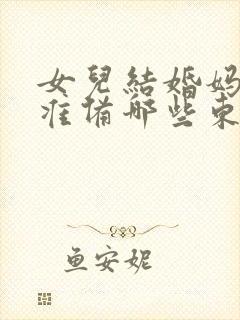 女兒結婚妈
准備哪些東
鱼安妮